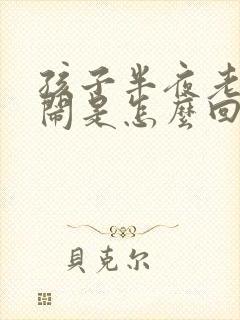 孩子半夜老
鬧是怎麼回
貝克尔